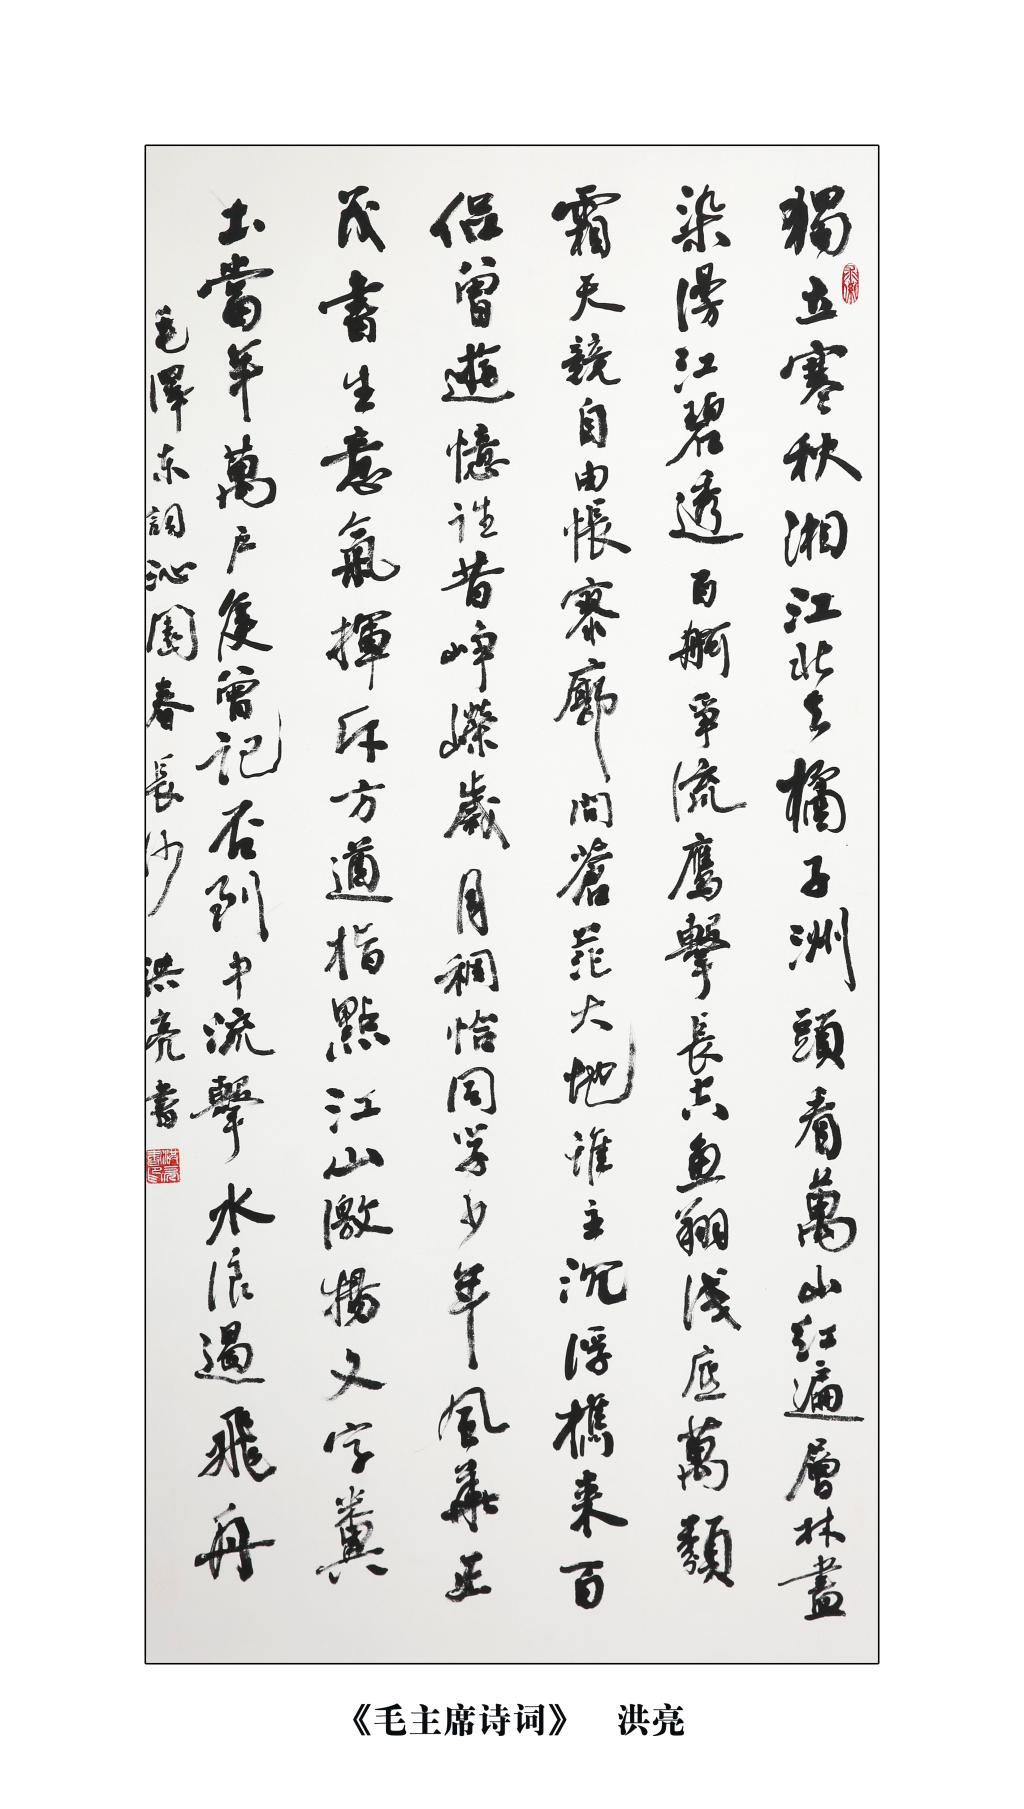 獨立寒秋湘江北去橘子洲頭看萬山紅遍層林盡
染漫江碧透百舸爭流鷹擊長空魚翔淺底萬類
霜天競自由悵寥廓問蒼茫大地誰主沉浮攜来百
侣曾遊憶往昔崢嶸歲月稠恰同学少年風華正
茂書生意氣揮斥方遒指點江山激揚文字糞
土當年萬戶侯曾記否到中流擊水浪遏飛舟
毛澤东詞沁園春長沙 洪亮書
《毛主席诗词》 洪亮